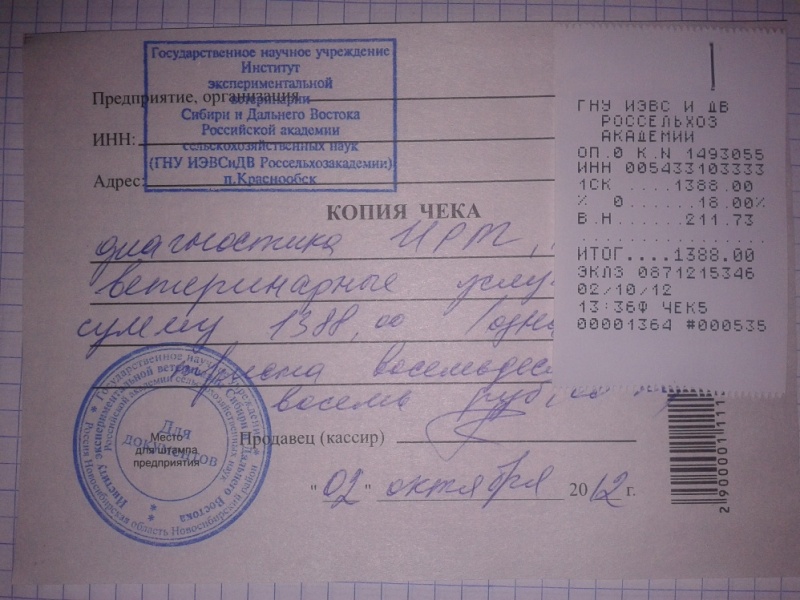 Государственное научное учреждение
Институт
экспериментальной
ветеринарии
Сибири и Дальнего Востока
Российской академии
сельскохозяйственных наук
(ГНУ ИЭВСиДВ Россельхозакадемии)
п.Краснообск
Предприятие, организация
ИНН:
Адрес:
КОПИЯ ЧЕКА
диагностика ИРТ,
ветеринарные услу
сумму 1388,00 (одна
триста восемьдес
восемь рубл
Продавец (кассир)
"02" октября 2012 г.
Место
для штампа
предприятия
Для
документов
Государственное научное учреждение
Институт экспериментальной ветеринарии Сибири и Дальнего Востока
Российской академии сельскохозяйственных наук
Россия Новосибирская область Новосибирский район
ГНУ ИЭВС И ДВ
РОССЕЛЬХОЗ
АКАДЕМИИ
ОП.0 К.N 1493055
ИНН 005433103333
1СК ....1388.00
% 0......18.00%
В.Н......211.73
ИТОГ....1388.00
ЭКЛЗ 0871215346
02/10/12
13:36Ф ЧЕК5
00001364 #000535
2 900001 111